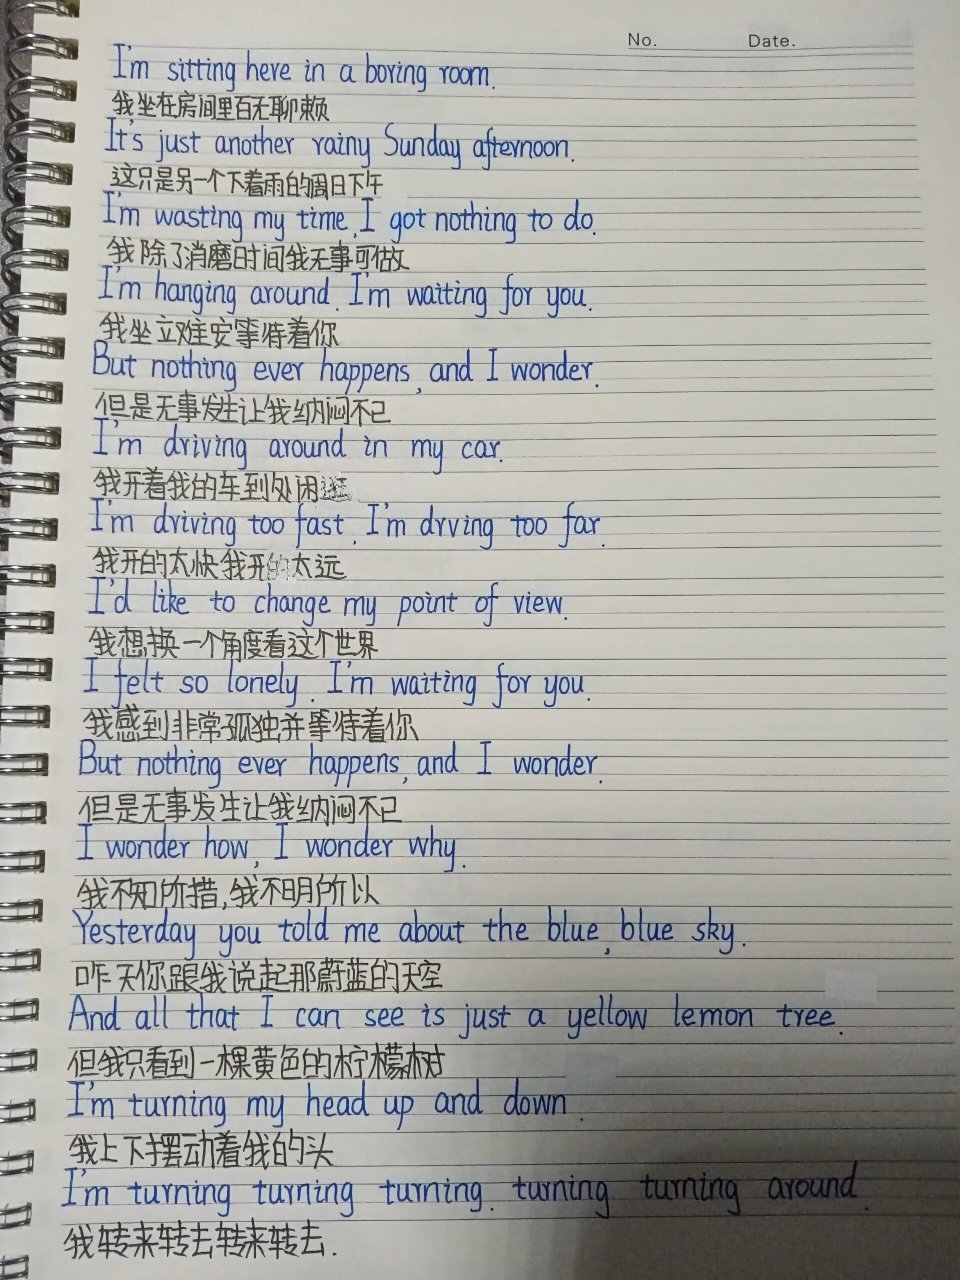 No. Date.
I'm sitting here in a boring room.
我坐在房间里百无聊赖
It's just another rainy Sunday afternoon.
这只是另一个下着雨的周日下午
I'm wasting my time, I got nothing to do.
我除了消磨时间我无事可做
I'm hanging around. I'm waiting for you.
我坐立难安等待着你
But nothing ever happens, and I wonder.
但是无事发生让我纳闷不已
I'm driving around in my car.
我开着我的车到处闲逛
I'm driving too fast, I'm drving too far.
我开的太快我开的太远
I'd like to change my point of view.
我想换一个角度看这个世界
I felt so lonely. I'm waiting for you.
我感到非常孤独并等待着你
But nothing ever happens, and I wonder.
但是无事发生让我纳闷不已
I wonder how, I wonder why.
我不知所措,我不明所以
Yesterday you told me about the blue, blue sky.
昨天你跟我说起那蔚蓝的天空
And all that I can see is just a yellow lemon tree.
但我只看到一棵黄色的柠檬树
I'm turning my head up and down.
我上下摆动着我的头
I'm turning turning turning. turning turning around.
我转来转去转来转去.